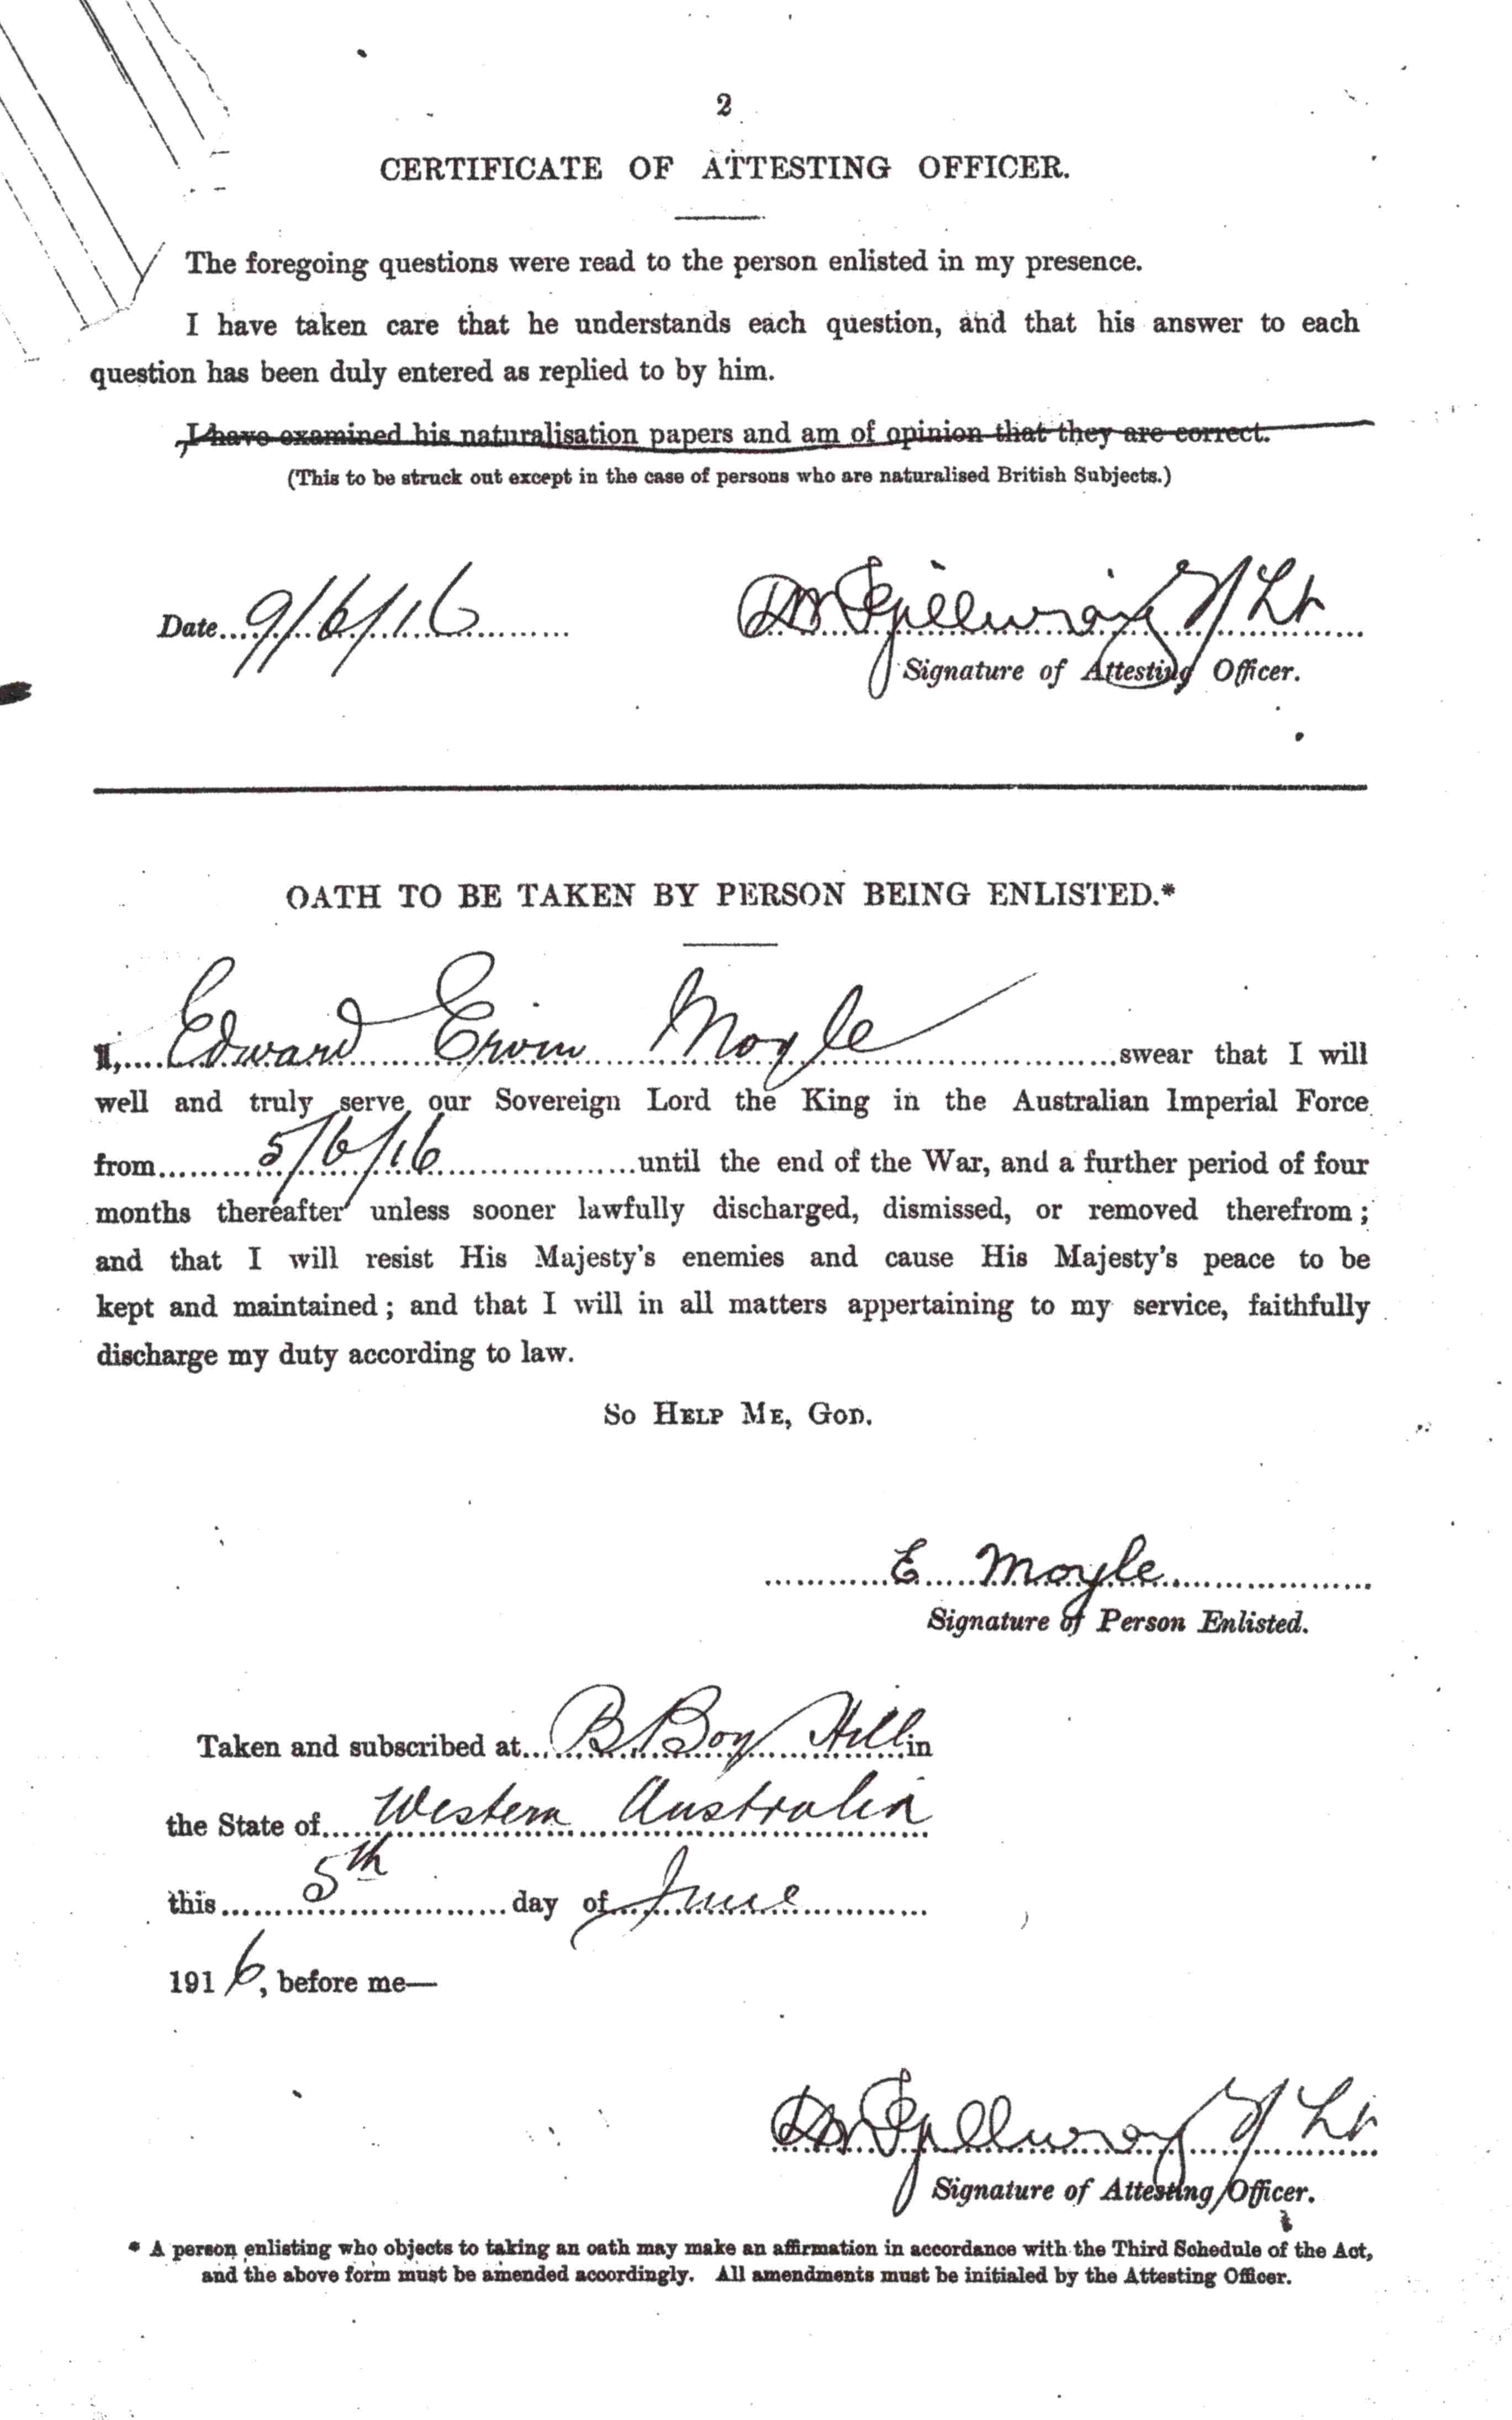 2
CERTIFICATE OF ATTESTING OFFICER.
The foregoing questions were read to the person enlisted in my presence.
I have taken care that he understands each question, and that his answer to each
question has been duly entered as replied to by him.
I have examined his naturalisation papers and am of opinion that they are correct.
(This to be struck out except in the case of persons who are naturalised British Subjects.)
Date 9/6/16
Lt
Signature of Attesting Officer.
OATH TO BE TAKEN BY PERSON BEING ENLISTED.*
I, Edward Ervin Moyle swear that I will
well and truly serve our Sovereign Lord the King in the Australian Imperial Force
from 5/6/16 until the end of the War, and a further period of four
months thereafter unless sooner lawfully discharged, dismissed, or removed therefrom;
and that I will resist His Majesty's enemies and cause His Majesty's peace to be
kept and maintained; and that I will in all matters appertaining to my service, faithfully
discharge my duty according to law.
So Help Me, God.
E Moyle
Signature of Person Enlisted.
Taken and subscribed at B Boy Hill in
the State of Western Australia
this 5th day of June
1916, before me—
Lt
Signature of Attesting Officer.
* A person enlisting who objects to taking an oath may make an affirmation in accordance with the Third Schedule of the Act,
and the above form must be amended accordingly. All amendments must be initialed by the Attesting Officer.